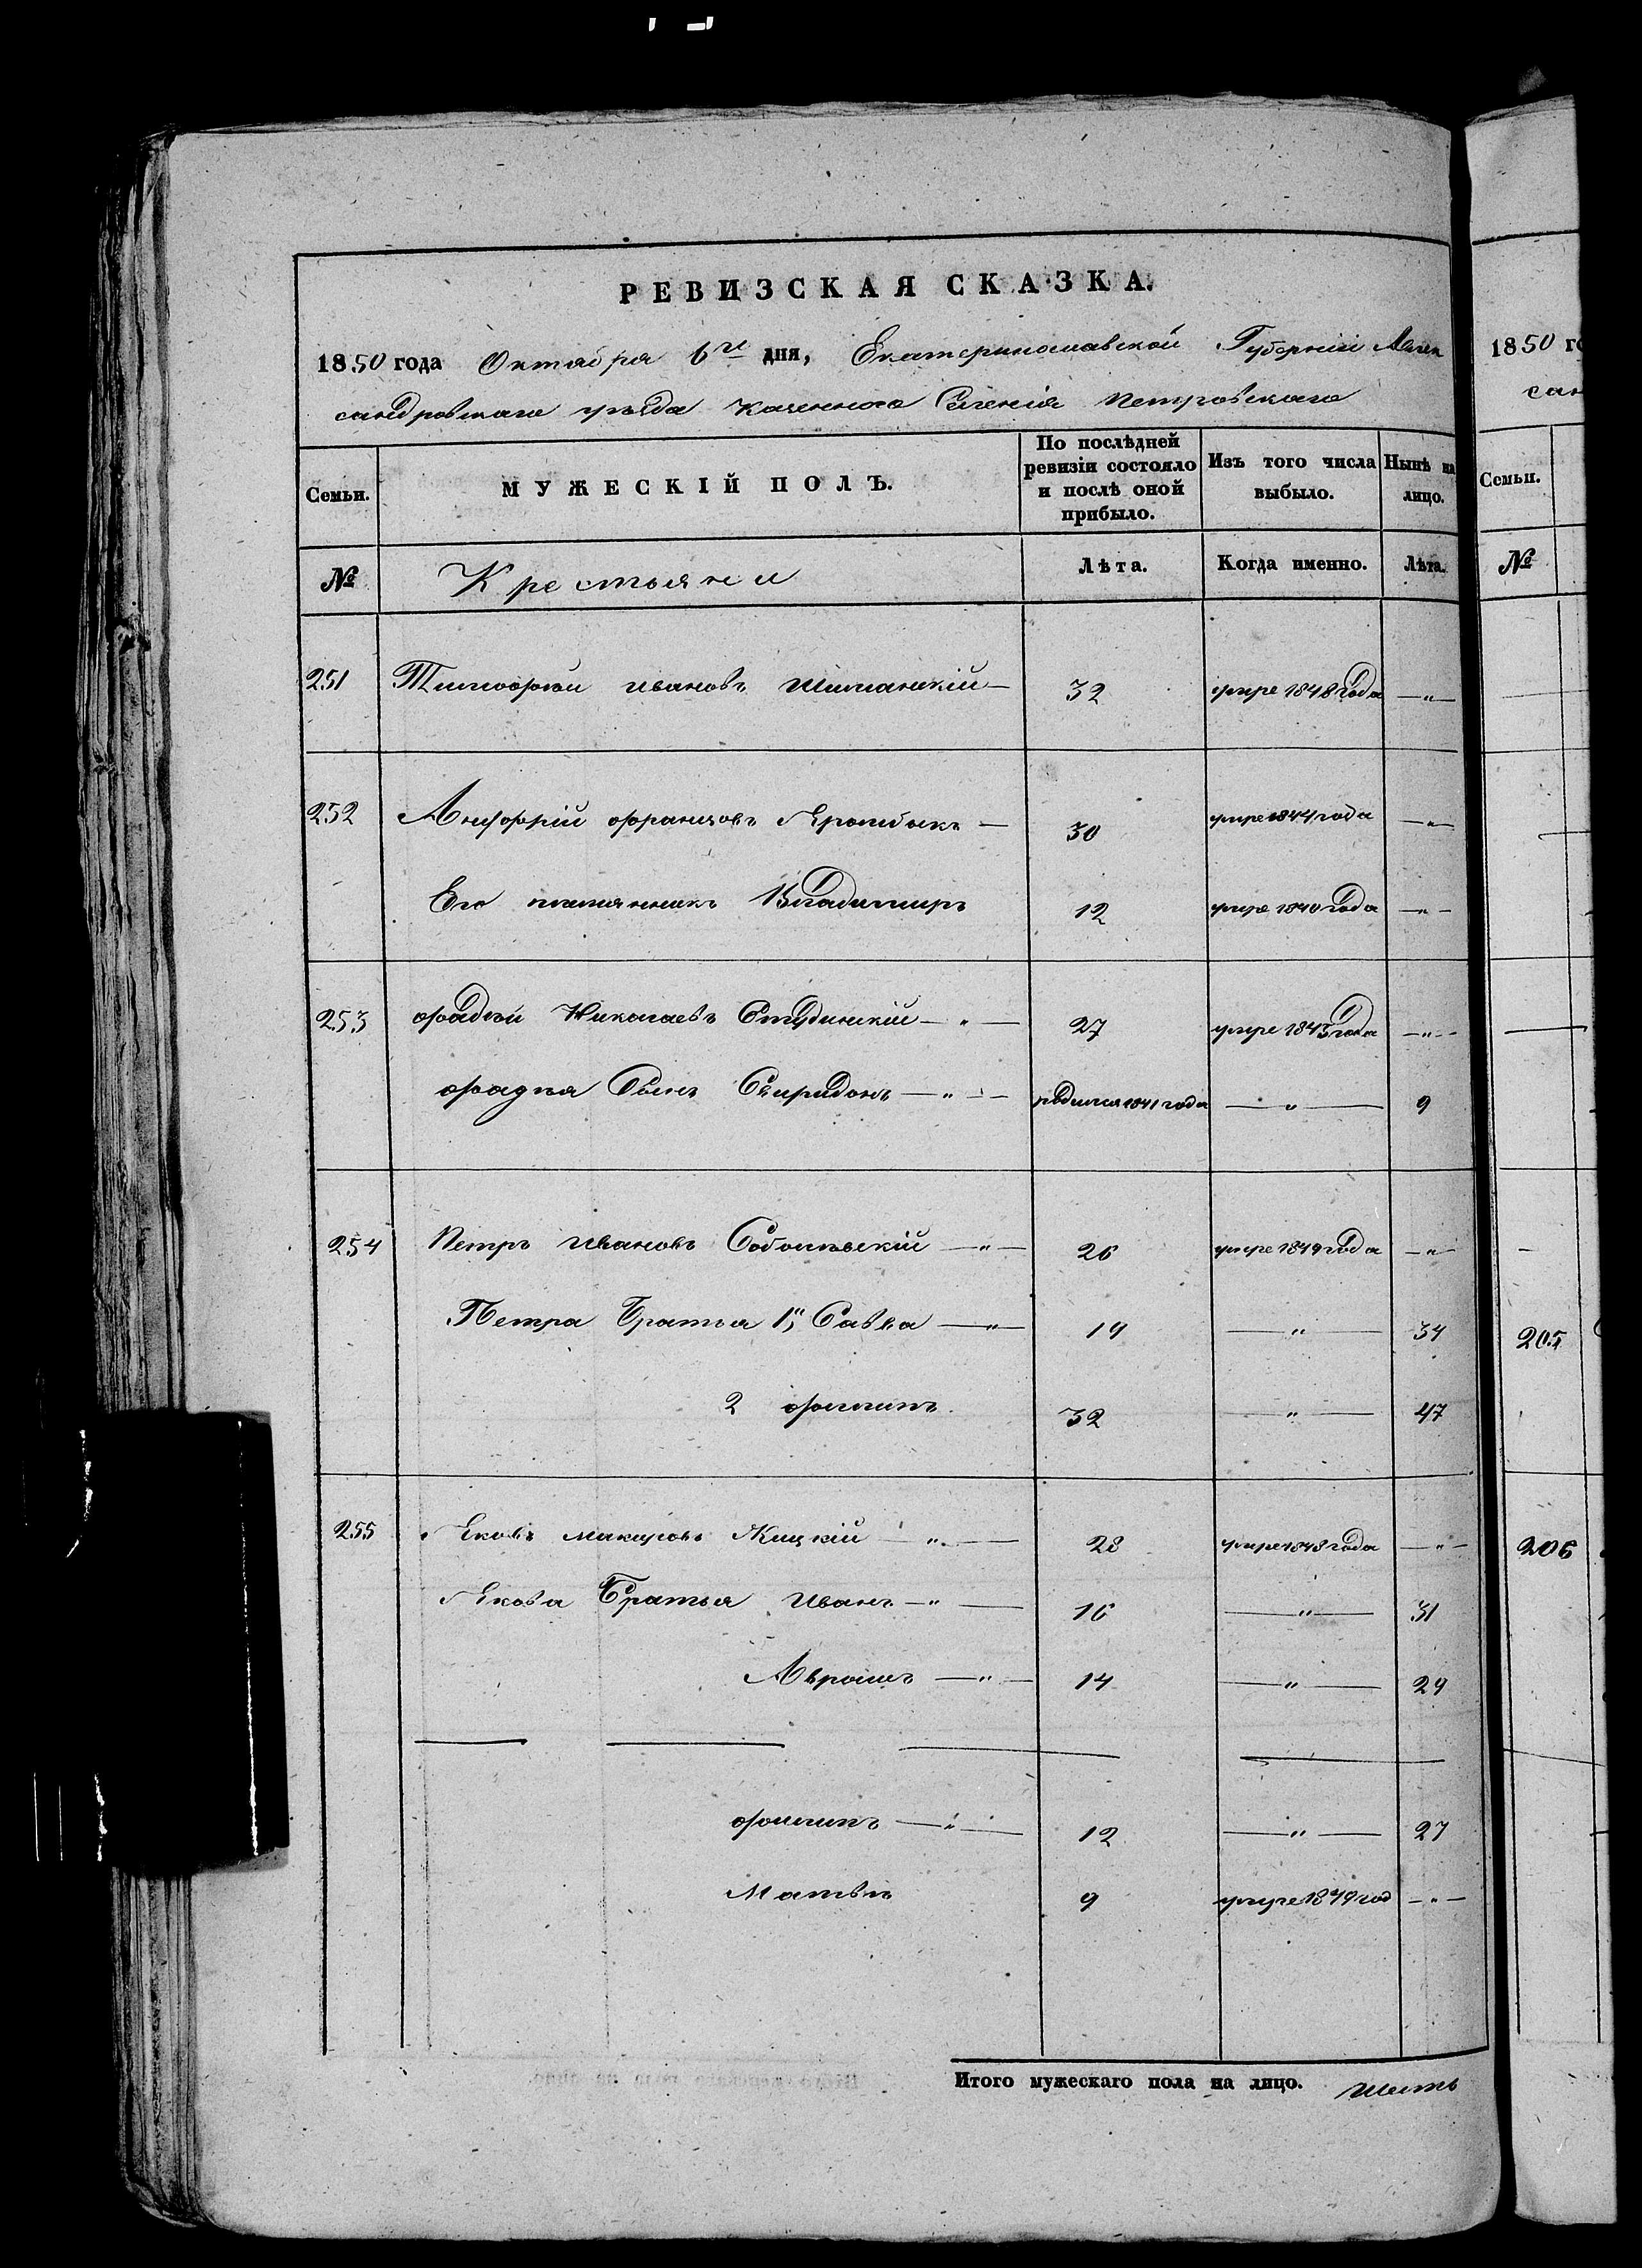 РЕВИЗСКАЯ СКАЗКА.
1850 года Октября 6го дня, Екатеринославской Губерніи Алек
сандровскаго уѣзда казеннаго Селенія Петровскаго
Семьи.
МУЖЕСКІЙ ПОЛЪ.
По послѣдней ревизіи состояло и послѣ оной прибыло.
Изъ того числа выбыло.
Нынѣ на лицо.
№
Крестьяни
Лѣта.
Когда именно.
Лѣта.
251 Тимофѣй Ивановъ Шиманскій — 32 умре 1848 года — " —
252 францовъ — 30 умре 1844 года — " —
Его племянникъ Владимиръ 12 умре 1840 года — " —
253 фадѣй Николаевъ Студинскій — " — 27 умре 1843 года — " —
фадѣя Сынъ Свиридонъ — " — родился 1841 года — " — 9
254 Петръ Ивановъ Собольвскій — " — 26 умре 1849 года — " —
Петра Братья 1, Савва — " — 19 — " — 34
2 филипъ 32 — " — 47
255 Яковъ Макаровъ Жицкій — " — 28 умре 1848 года — " —
Якова Братья Иванъ — " — 16 — " — 31
Аврамъ — " — 14 — " — 29
филипъ — " — 12 — " — 27
Матвѣй 9 умре 1849 год — " —
Итого мужескаго пола на лицо. Шесть
1850 го
сан
Семьи.
№
205
206